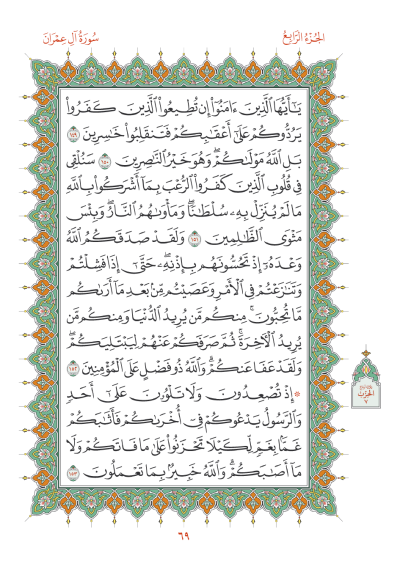 الجُزْءُ الرَّابِعُ
سُورَةُ آلِ عِمْرَانَ
يَٰٓأَيُّهَا ٱلَّذِينَ ءَامَنُوٓا۟ إِن تُطِيعُوا۟ ٱلَّذِينَ كَفَرُوا۟
يَرُدُّوكُمْ عَلَىٰٓ أَعْقَٰبِكُمْ فَتَنقَلِبُوا۟ خَٰسِرِينَ ١٤٩
بَلِ ٱللَّهُ مَوْلَىٰكُمْ ۖ وَهُوَ خَيْرُ ٱلنَّٰصِرِينَ ١٥٠ سَنُلْقِى
فِى قُلُوبِ ٱلَّذِينَ كَفَرُوا۟ ٱلرُّعْبَ بِمَآ أَشْرَكُوا۟ بِٱللَّهِ
مَا لَمْ يُنَزِّلْ بِهِۦ سُلْطَٰنًا ۖ وَمَأْوَىٰهُمُ ٱلنَّارُ ۚ وَبِئْسَ
مَثْوَى ٱلظَّٰلِمِينَ ١٥١ وَلَقَدْ صَدَقَكُمُ ٱللَّهُ
وَعْدَهُۥٓ إِذْ تَحُسُّونَهُم بِإِذْنِهِۦ ۖ حَتَّىٰٓ إِذَا فَشِلْتُمْ
وَتَنَٰزَعْتُمْ فِى ٱلْأَمْرِ وَعَصَيْتُم مِّنۢ بَعْدِ مَآ أَرَىٰكُم
مَّا تُحِبُّونَ ۚ مِنكُم مَّن يُرِيدُ ٱلدُّنْيَا وَمِنكُم مَّن
يُرِيدُ ٱلْءَاخِرَةَ ۚ ثُمَّ صَرَفَكُمْ عَنْهُمْ لِيَبْتَلِيَكُمْ ۖ
وَلَقَدْ عَفَا عَنكُمْ ۗ وَٱللَّهُ ذُو فَضْلٍ عَلَى ٱلْمُؤْمِنِينَ ١٥٢
۞ إِذْ تُصْعِدُونَ وَلَا تَلْوُۥنَ عَلَىٰٓ أَحَدٍ
وَٱلرَّسُولُ يَدْعُوكُمْ فِىٓ أُخْرَىٰكُمْ فَأَثَٰبَكُمْ
غَمًّۢا بِغَمٍّ لِّكَيْلَا تَحْزَنُوا۟ عَلَىٰ مَا فَاتَكُمْ وَلَا
مَآ أَصَٰبَكُمْ ۗ وَٱللَّهُ خَبِيرٌۢ بِمَا تَعْمَلُونَ ١٥٣
الحِزْب
٧
٦٩